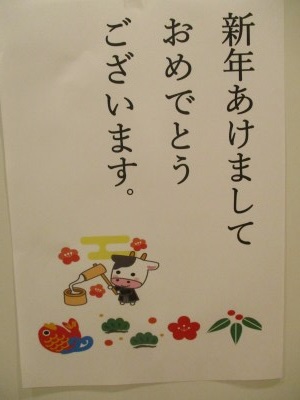 新年あけまして
おめでとう
ございます。